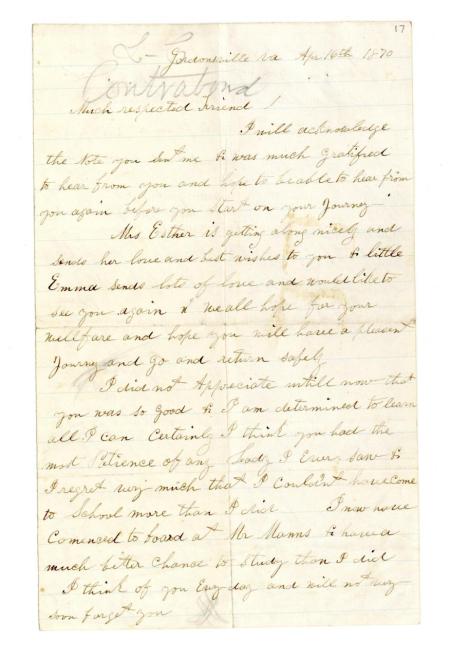 17
Gordonsville Va Apr 16th 1870
Contraband
Much respected Friend !
I will acknowledge
the Note you sent me & was much gratified
to hear from you and hope to be able to hear from
you again before you start on your Journey
Mrs Esther is getting along nicely and
sends her love and best wishes to you & little
Emma sends lots of love and would like to
see you again " We all hope for your
wellfare and hope you will have a pleasent
Journey and go and return safely
I did not Appreciate untill now that
you was so good & I am determined to learn
all I can Certainly I think you had the
most Patience of any Lady I Every saw &
I regret very much that I couldn't have come
to School more than I did I now have
Comenced to board at Mr Manns & have a
much bitter chance to study than I did
I think of you Evry day and will not very
soon forget you